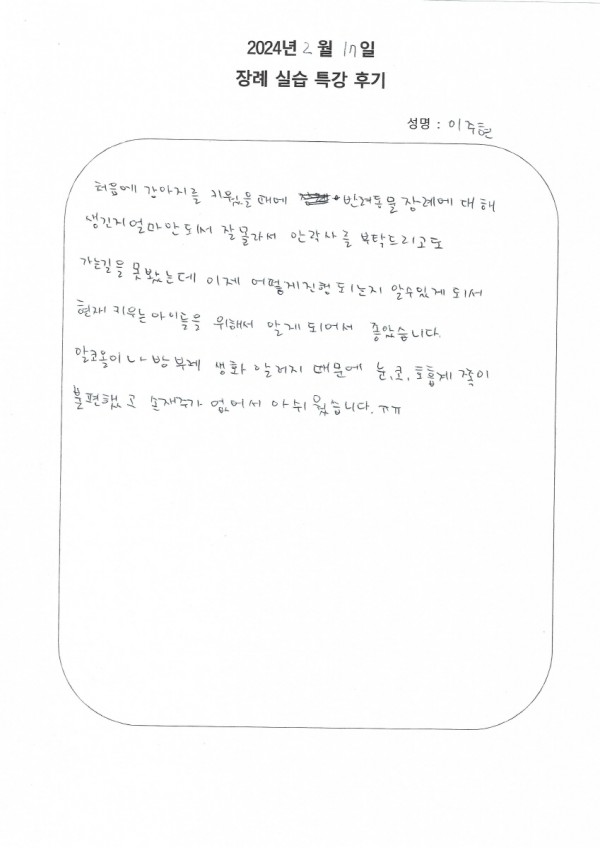 2024년 2월 17일
장례 실습 특강 후기
성명 : 이주현
처음에 강아지를 키웠을때에 반려동물 장례에 대해
생긴지얼마안되서 잘몰라서 안락사를 부탁드리고도
가는길을 못봤는데 이제 어떻게진행되는지 알수있게 되서
현재 키우는아이들을 위해서 알게 되어서 좋았습니다.
알코올이나 방부제 생화 알러지 때문에 눈,코,호흡계 쪽이
불편했고 손재주가 없어서 아쉬웠습니다.ㅠㅠ